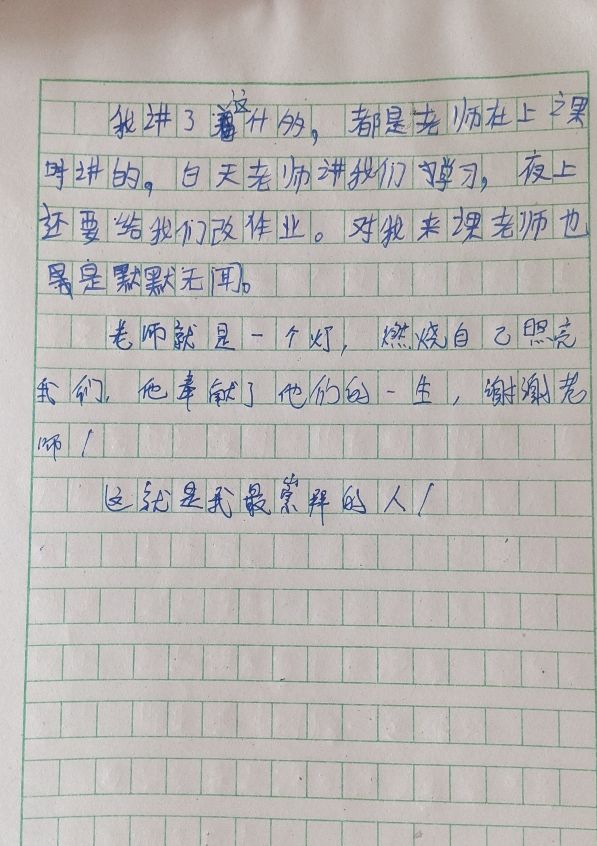 我讲了这什多，都是老师在上课
时讲的，白天老师讲我们学习，夜上
还要给我们改作业。对我来课老师也
是默默无闻。
老师就是一个灯，燃烧自己照亮
我们，他奉献了他们的一生，谢谢老
师！
这就是我最崇拜的人！